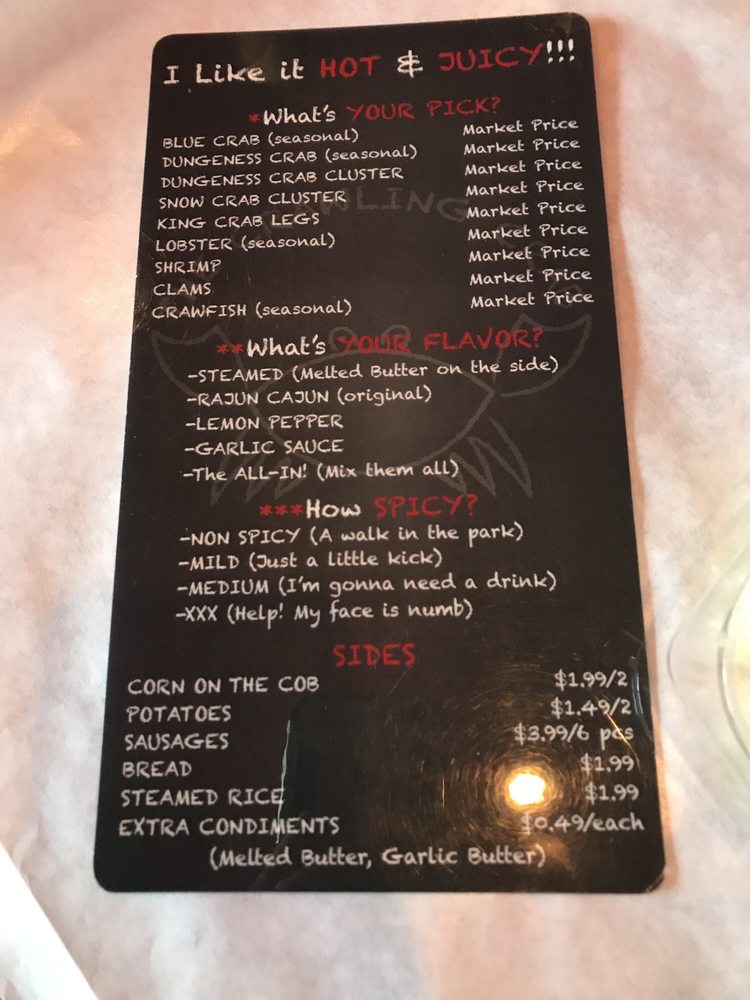 I Like it HOT & JUICY!!!
*What's YOUR PICK?
BLUE CRAB (seasonal) Market Price
DUNGENESS CRAB (seasonal) Market Price
DUNGENESS CRAB CLUSTER Market Price
SNOW CRAB CLUSTER Market Price
KING CRAB LEGS Market Price
LOBSTER (seasonal) Market Price
SHRIMP Market Price
CLAMS Market Price
CRAWFISH (seasonal) Market Price
**What's YOUR FLAVOR?
-STEAMED (Melted Butter on the side)
-RAJUN CAJUN (original)
-LEMON PEPPER
-GARLIC SAUCE
-The ALL-IN! (Mix them all)
***How SPICY?
-NON SPICY (A walk in the park)
-MILD (Just a little kick)
-MEDIUM (I'm gonna need a drink)
-XXX (Help! My face is numb)
SIDES
CORN ON THE COB $1.99/2
POTATOES $1.49/2
SAUSAGES $3.99/6 pcs
BREAD $1.99
STEAMED RICE $1.99
EXTRA CONDIMENTS $0.49/each
(Melted Butter, Garlic Butter)